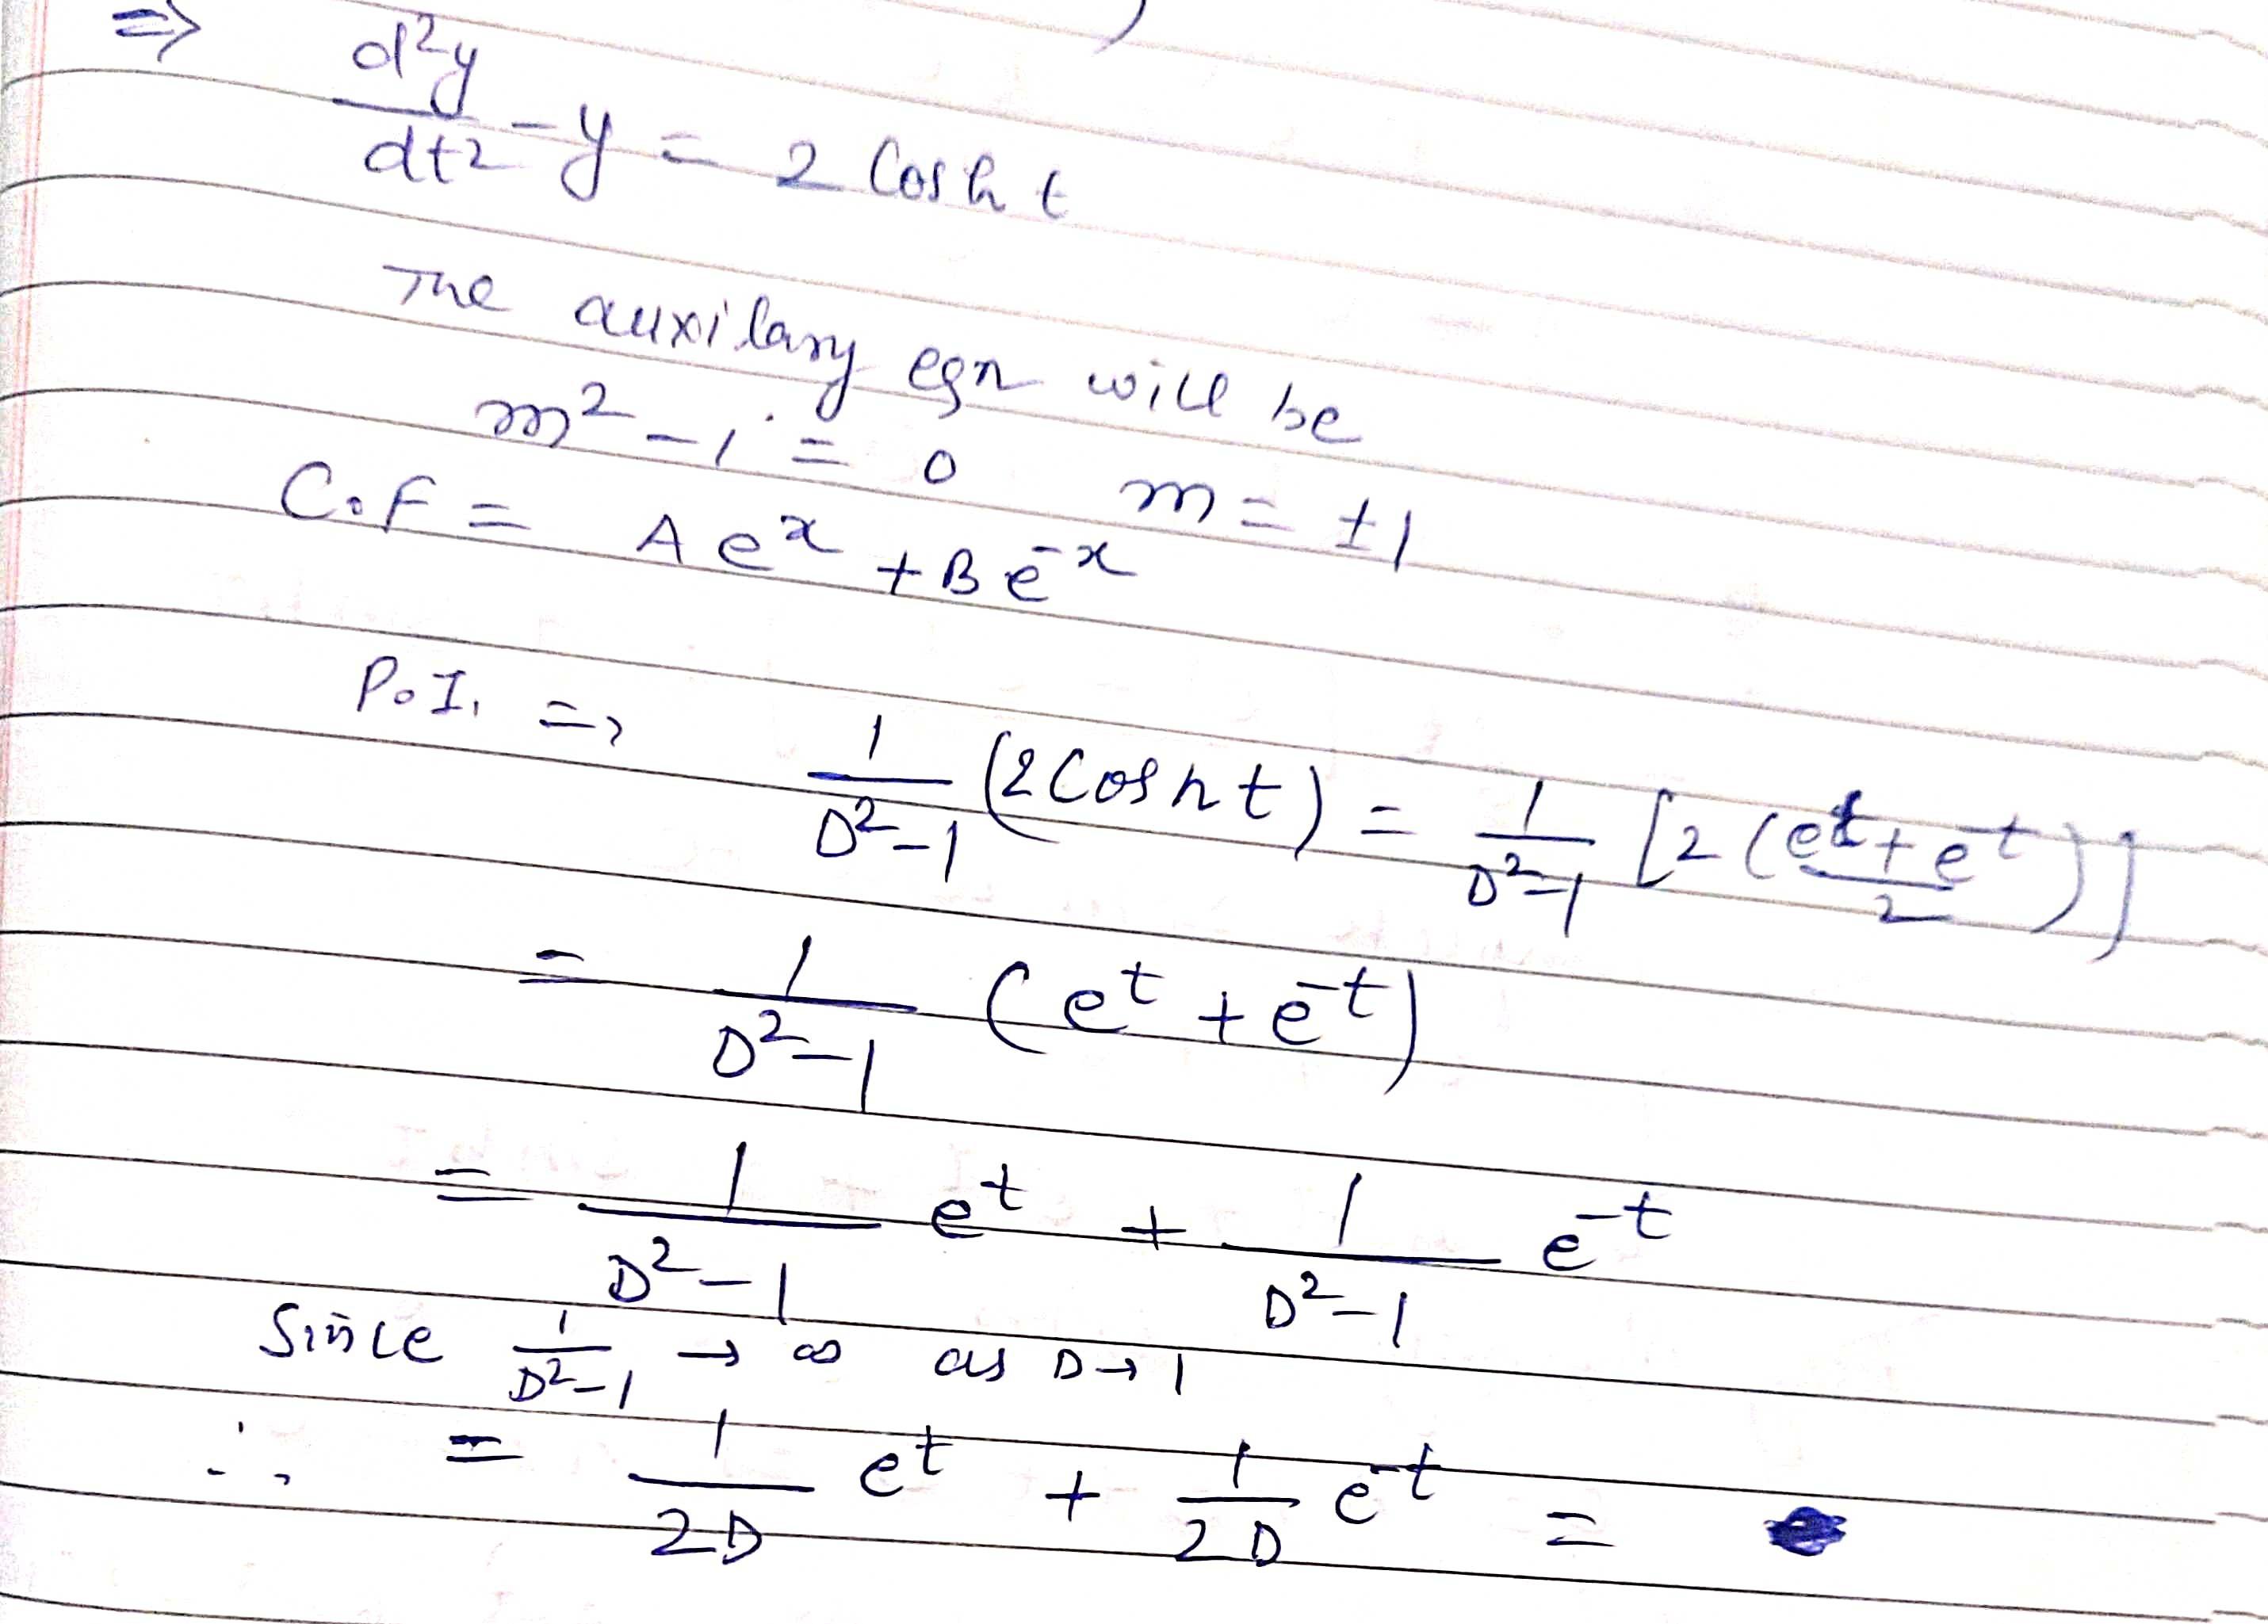 ⇒ d²y/dt² - y = 2 Cosh t
The auxilary eqn will be
m² - 1 = 0 m = ±1
C.F = A eˣ + B e⁻ˣ
P.I. ⇒ 1/(D²-1) (2 Cosh t) = 1/(D²-1) [2 ((eᵗ + e⁻ᵗ)/2)]
= 1/(D²-1) (eᵗ + e⁻ᵗ)
= 1/(D²-1) eᵗ + 1/(D²-1) e⁻ᵗ
Since 1/(D²-1) → ∞ as D → 1
∴ = 1/(2D) eᵗ + 1/(2D) e⁻ᵗ =